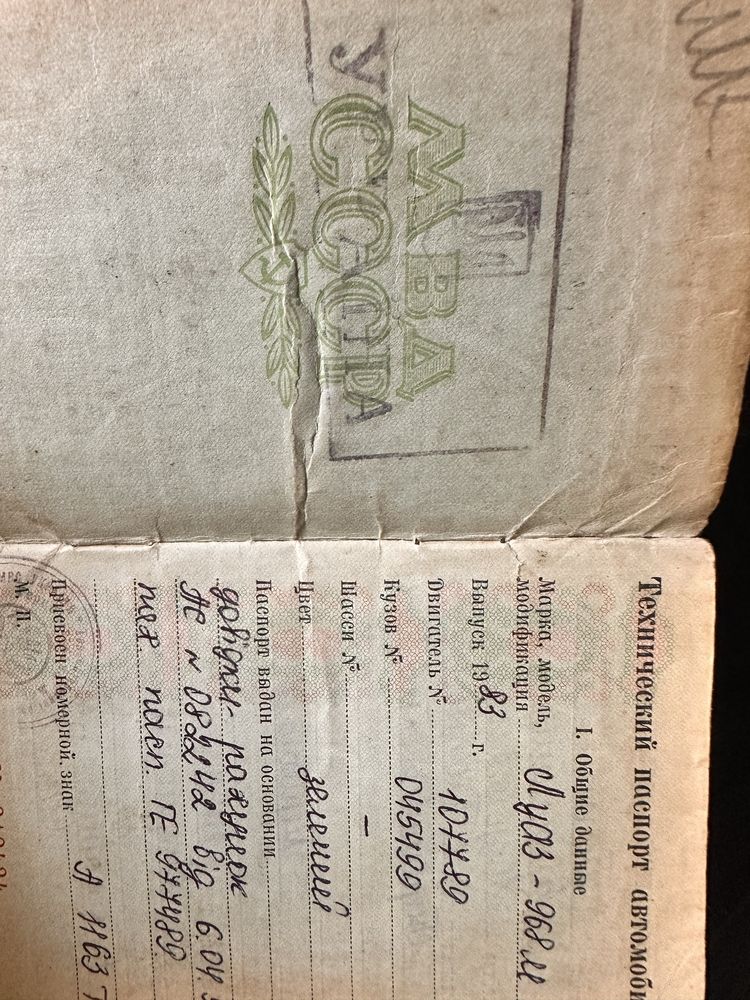 МВД
УССР
УКРАЇНА
Технический паспорт автомоби
I. Общие данные
Марка, модель,
модификация Луаз - 968 М
Выпуск 1983 г.
Двигатель №
Кузов № 045490
Шасси № –
Цвет зелений
Паспорт выдан на основании
довідки-рахунок
АС № 082242 від 6.04.9
тех пасп. ТЕ
Присвоен номерной знак А 1163
М. П.